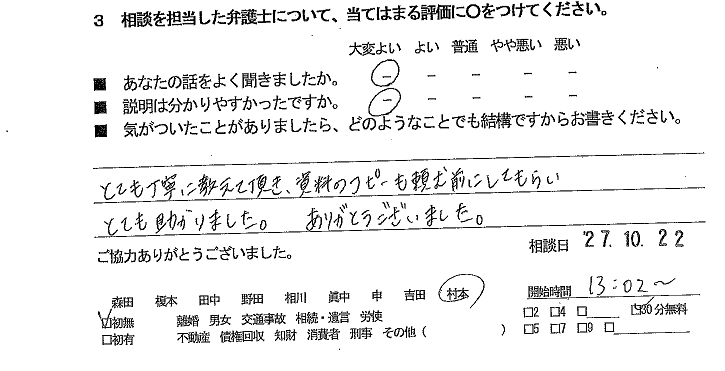 3 相談を担当した弁護士について、当てはまる評価に〇をつけてください。
大変よい よい 普通 やや悪い 悪い
■ あなたの話をよく聞きましたか。 － － － － －
■ 説明は分かりやすかったですか。 － － － － －
■ 気がついたことがありましたら、どのようなことでも結構ですからお書きください。
とても丁寧に教えて頂き、資料のコピーも頼む前にしてもらい
とても助かりました。 ありがとうございました。
ご協力ありがとうございました。
相談日 '27.10.22
森田 榎本 田中 野田 相川 眞中 申 吉田 村本
開始時間 13:02～
☑初無 離婚 男女 交通事故 相続・遺言 労使
□2 □4 □ ☑30分無料
□初有 不動産 債権回収 知財 消費者 刑事 その他（ ）
□5 □7 □9 □